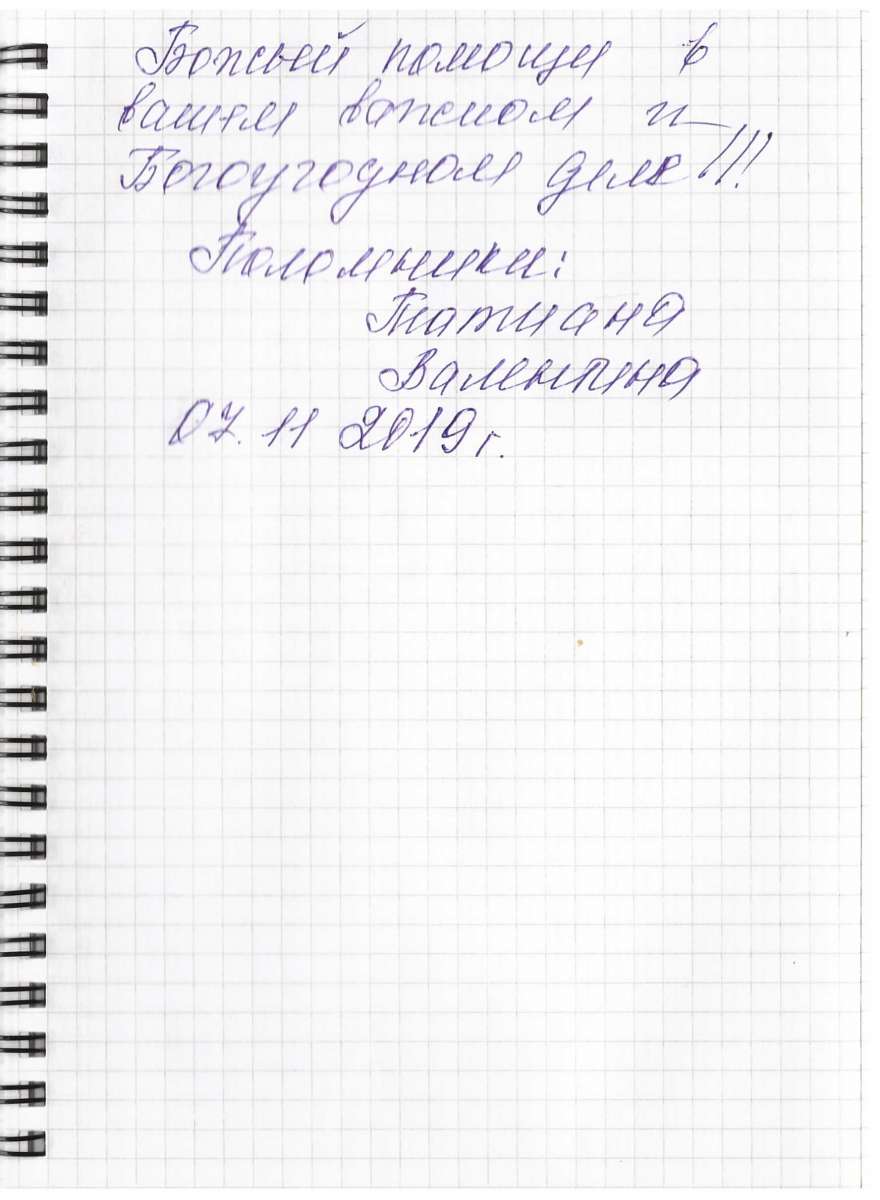 Божьей помощи в
вашем важном и
Богоугодном деле!!!
Поломники:
Татиана
Валентина
07.11 2019 г.